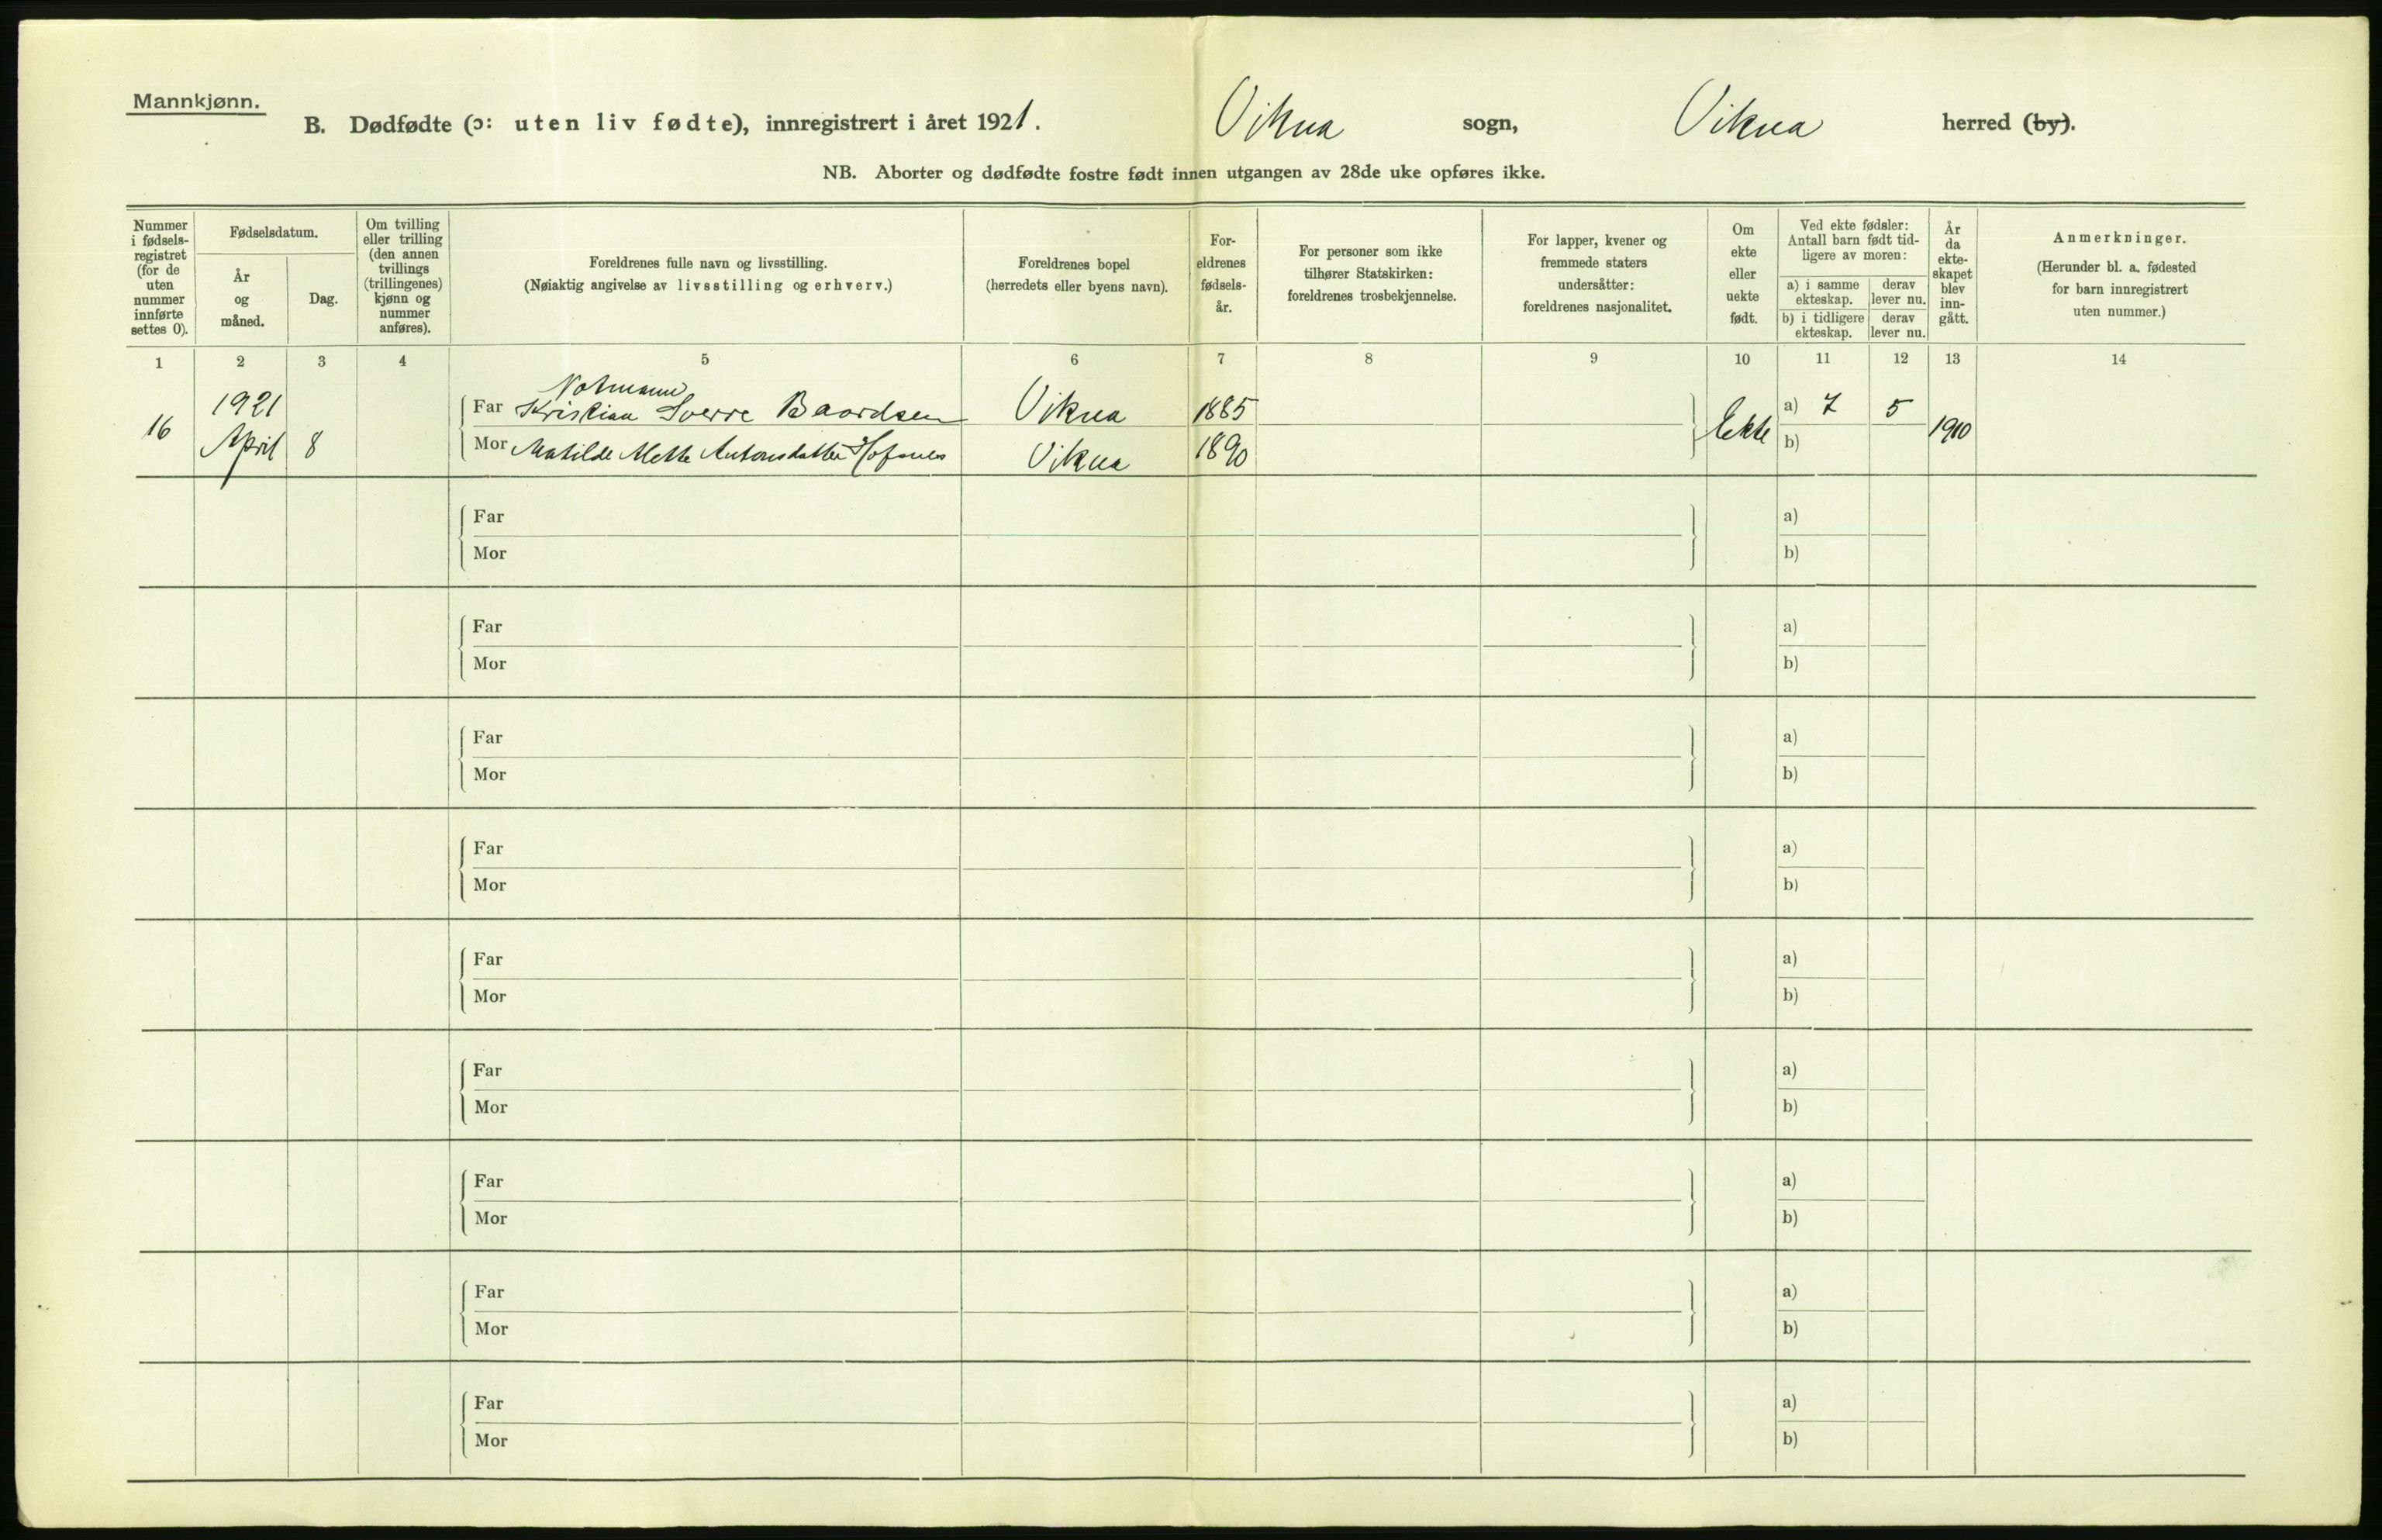 Mannkjønn.
B. Dødfødte (ɔ: uten liv fødte), innregistrert i året 1921. Vikna sogn, Vikna herred (by).
NB. Aborter og dødfødte fostre født innen utgangen av 28de uke opføres ikke.
Nummer i fødsels-registret (for de uten nummer innførte settes 0).
Fødselsdatum.
År og måned.
Dag.
Om tvilling eller trilling (den annen tvillings (trillingenes) kjønn og nummer anføres).
Foreldrenes fulle navn og livsstilling.
(Nøiaktig angivelse av livsstilling og erhverv.)
Foreldrenes bopel
(herredets eller byens navn).
For-eldrenes fødsels-år.
For personer som ikke tilhører Statskirken: foreldrenes trosbekjennelse.
For lapper, kvener og fremmede staters undersåtter: foreldrenes nasjonalitet.
Om ekte eller uekte født.
Ved ekte fødsler: Antall barn født tid-ligere av moren:
a) i samme ekteskap.
derav lever nu.
b) i tidligere ekteskap.
derav lever nu.
År da ekte-skapet blev inn-gått.
Anmerkninger.
(Herunder bl. a. fødested for barn innregistrert uten nummer.)
1 2 3 4 5 6 7 8 9 10 11 12 13 14
Notmann
16 1921 April 8
Far Kristian Sverre Baardsen Vikna 1885 Ekte a) 7 5 1910
Mor Matilde Alette Antonsdatter Hofsnes Vikna 1890 b)
Far a)
Mor b)
Far a)
Mor b)
Far a)
Mor b)
Far a)
Mor b)
Far a)
Mor b)
Far a)
Mor b)
Far a)
Mor b)
Far a)
Mor b)
Far a)
Mor b)